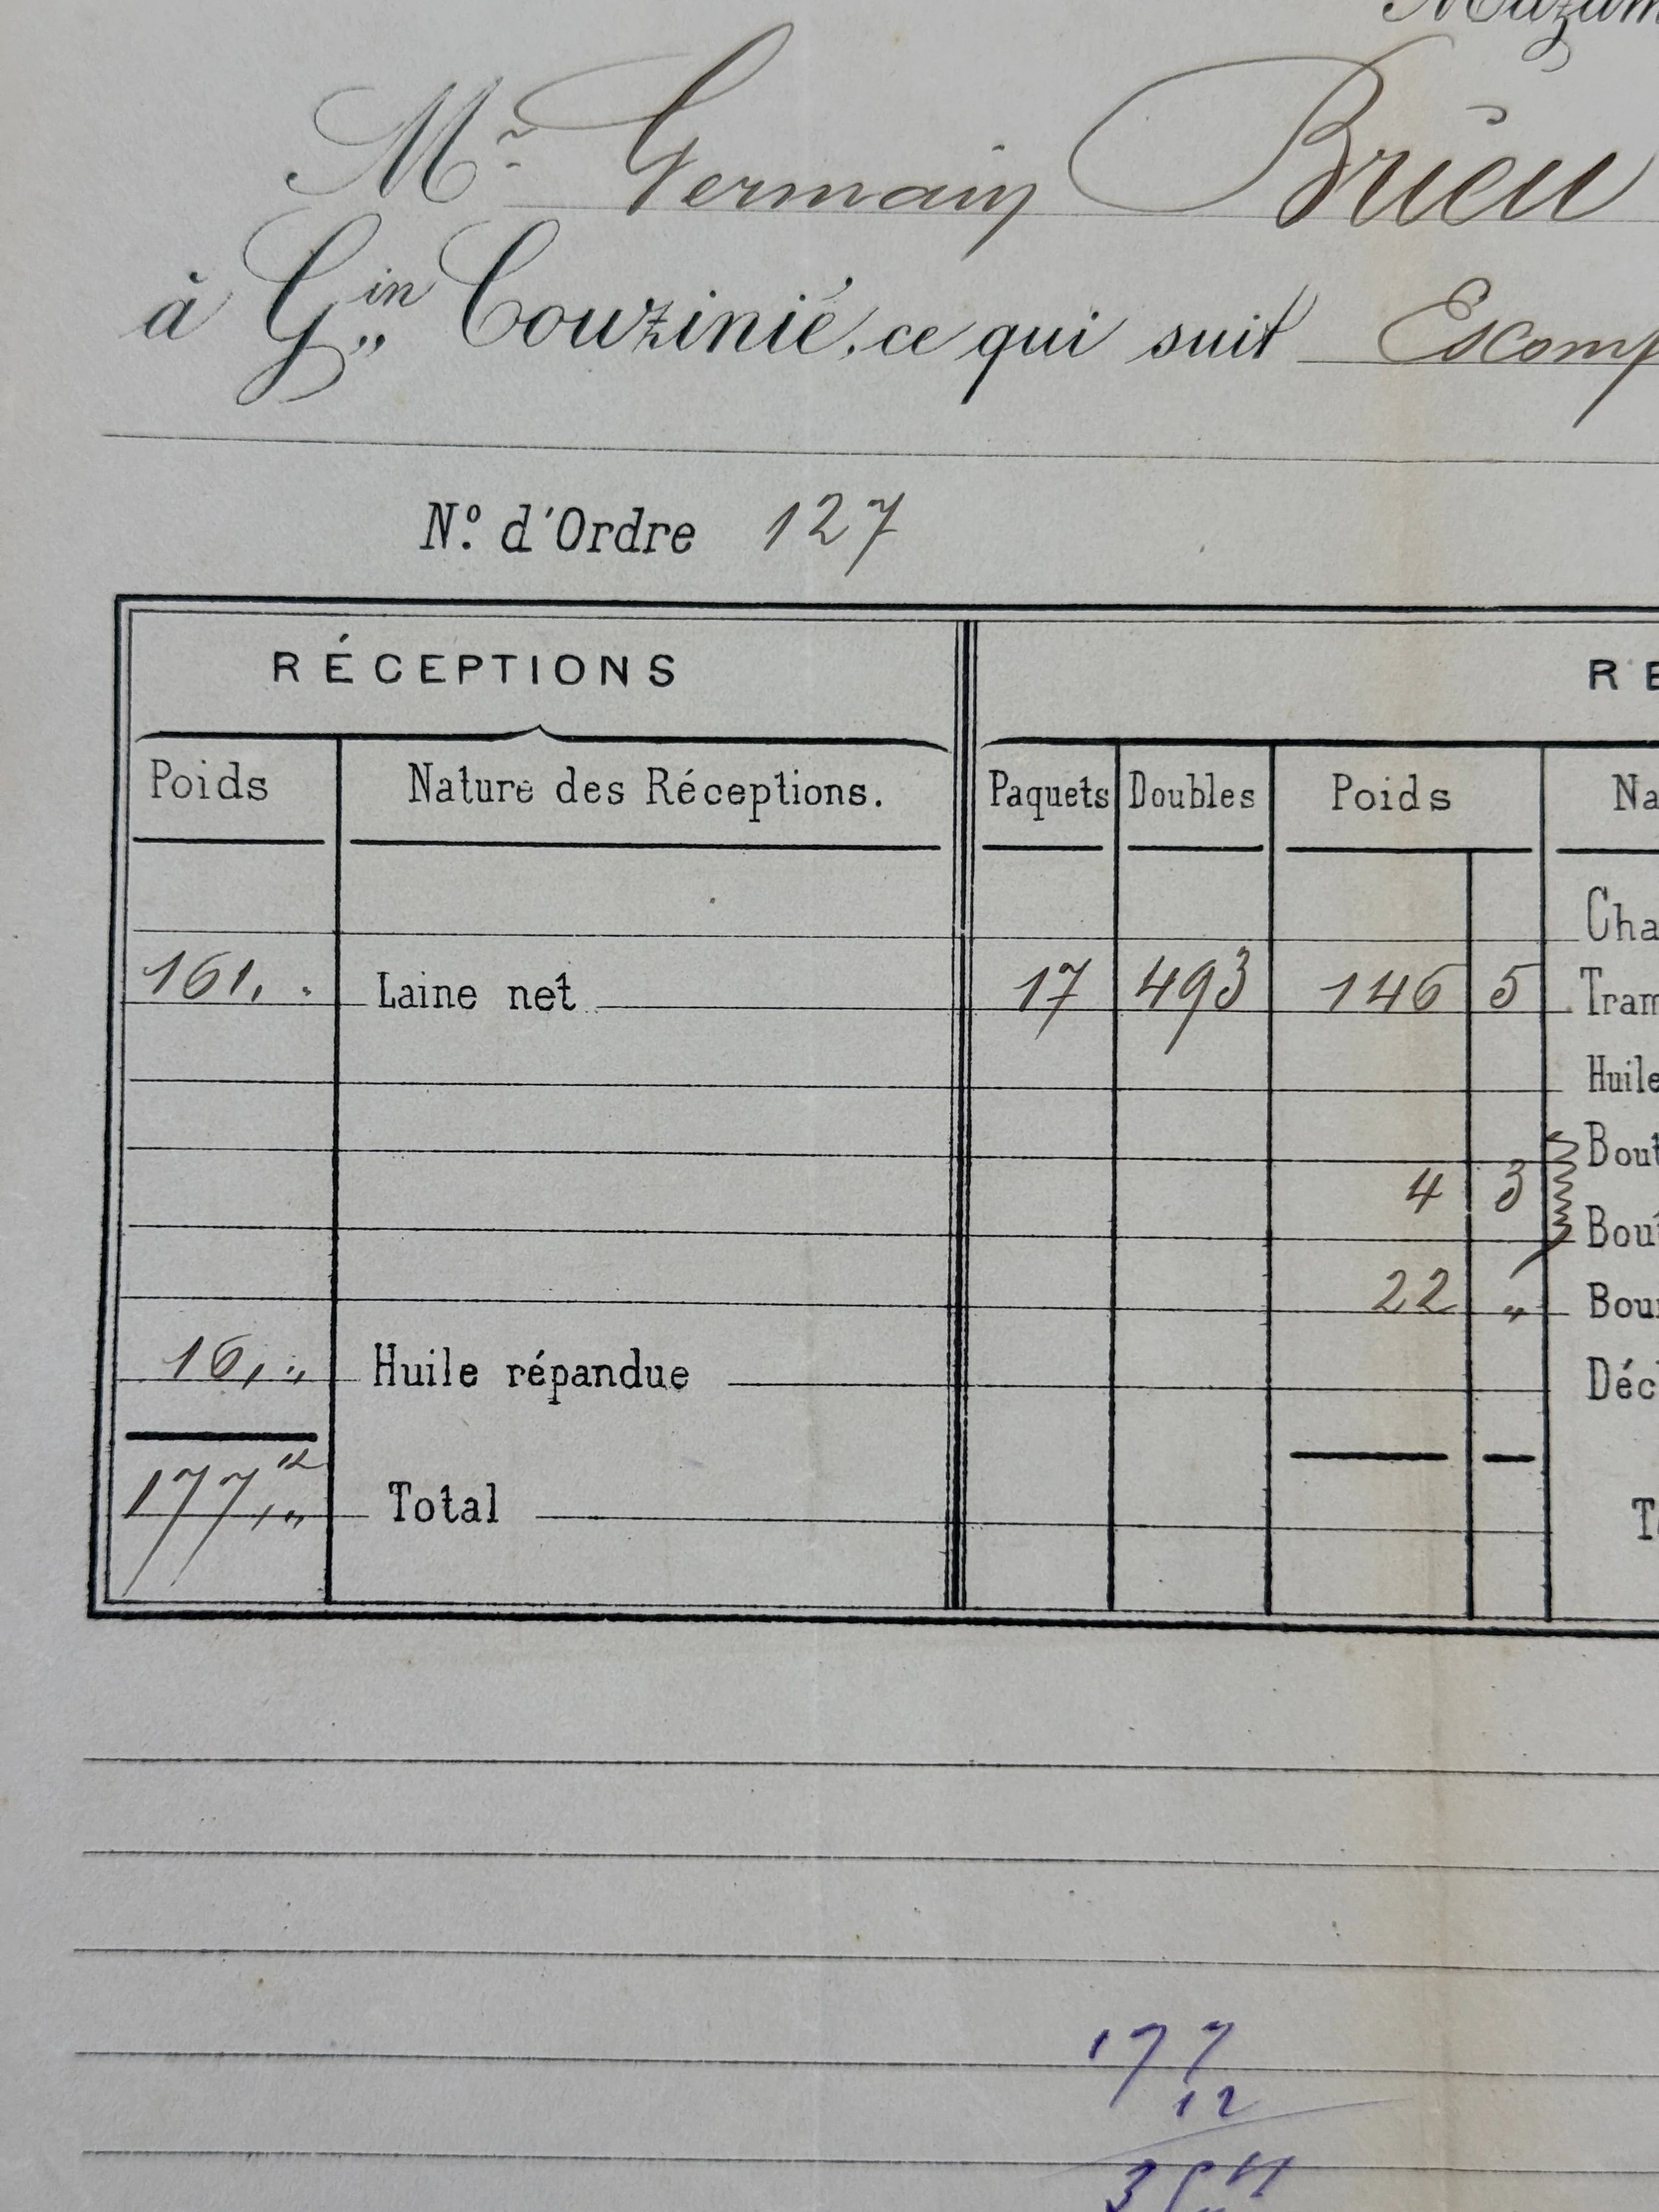 Mazam
Mr Germain Brieu
à Gin Couzinié, ce qui suit Escomp
No. d'Ordre 127
RÉCEPTIONS RE
Poids Nature des Réceptions. Paquets Doubles Poids Na
Cha
161,. Laine net 17 493 146 5 Tram
Huile
Bout
4 3
Bout
22 „ Bour
16,„ Huile répandue Déc
177,„ k Total To
177
12
354